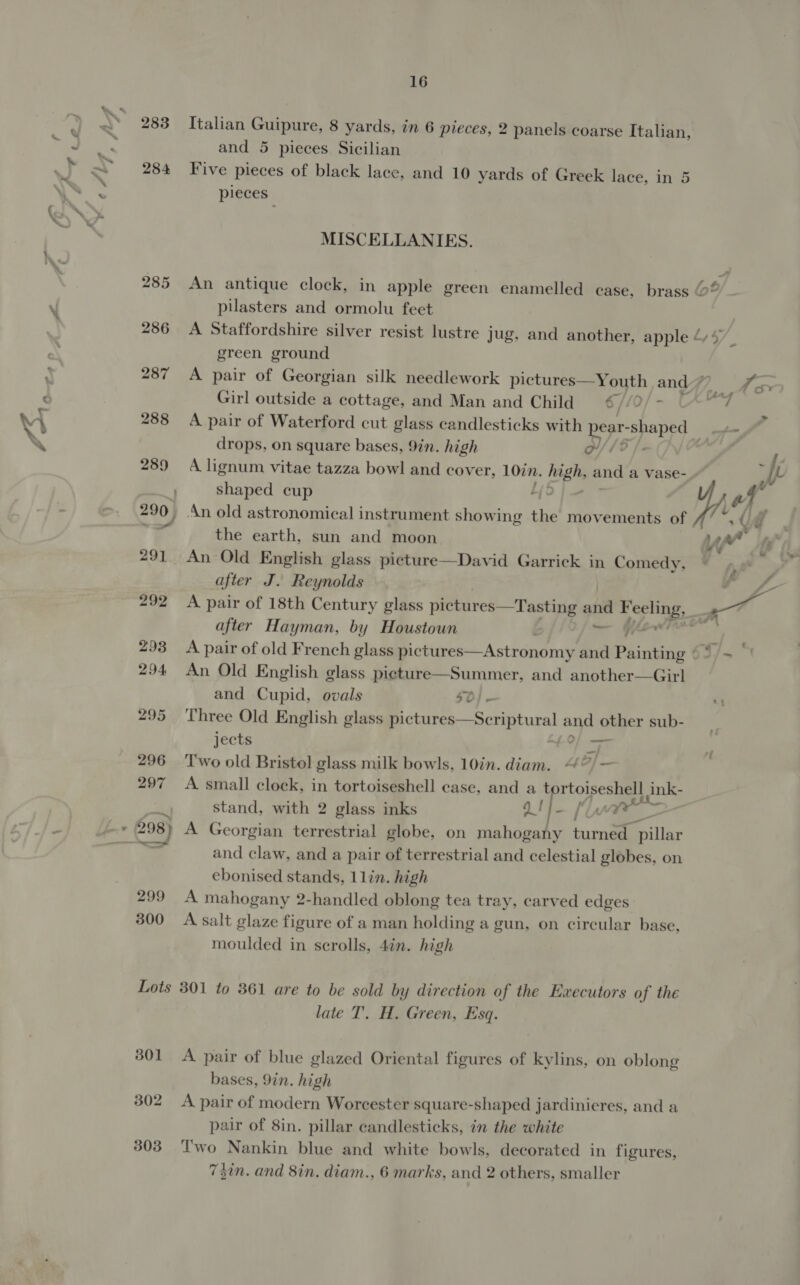 16
283 Italian Guipure, 8 yards, in 6 pieces, 2 panels coarse Italian,
and 5 pieces Sicilian
284 Five pieces of black lace, and 10 yards of Greek lace, in 5
pieces
MISCELLANIES.
285 An antique clock, in apple green enamelled case, brass
pilasters and ormolu feet
286 A Staffordshire silver resist lustre jug, and another, apple
green ground
287 A pair of Georgian silk needlework pictures—Youth and
Girl outside a cottage, and Man and Child
288 A pair of Waterford cut glass candlesticks with pear-shaped
drops, on square bases, 9in. high
289 A lignum vitae tazza bowl and cover, 10in. high, and a vase-
shaped cup
290 An old astronomical instrument showing the movements of
the earth, sun and moon
291 An Old English glass picture—David Garrick in Comedy,
after J. Reynolds
292 A pair of 18th Century glass pictures—Tasting and Feeling,
after Hayman, by Houstoun
293 A pair of old French glass pictures—Astronomy and Painting
294 An Old English glass picture—Summer, and another—Girl
and Cupid, ovals 50/-
295 Three Old English glass pictures—Scriptural and other sub-
jects
296 Two old Bristol glass milk bowls, 10in. diam.
297 A small clock, in tortoiseshell case, and a tortoiseshell ink-
stand, with 2 glass inks
298 A Georgian terrestrial globe, on mahogany turned pillar
and claw, and a pair of terrestrial and celestial globes, on
ebonised stands, 11in. high
299 A mahogany 2-handled oblong tea tray, carved edges
300 A salt glaze figure of a man holding a gun, on circular base,
moulded in scrolls, 4in. high
Lots 301 to 361 are to be sold by direction of the Executors of the
late T. H. Green, Esq.
301 A pair of blue glazed Oriental figures of kylins, on oblong
bases, 9in. high
302 A pair of modern Worcester square-shaped jardinieres, and a
pair of 8in. pillar candlesticks, in the white
303 Two Nankin blue and white bowls, decorated in figures,
7½in. and 8in. diam., 6 marks, and 2 others, smaller